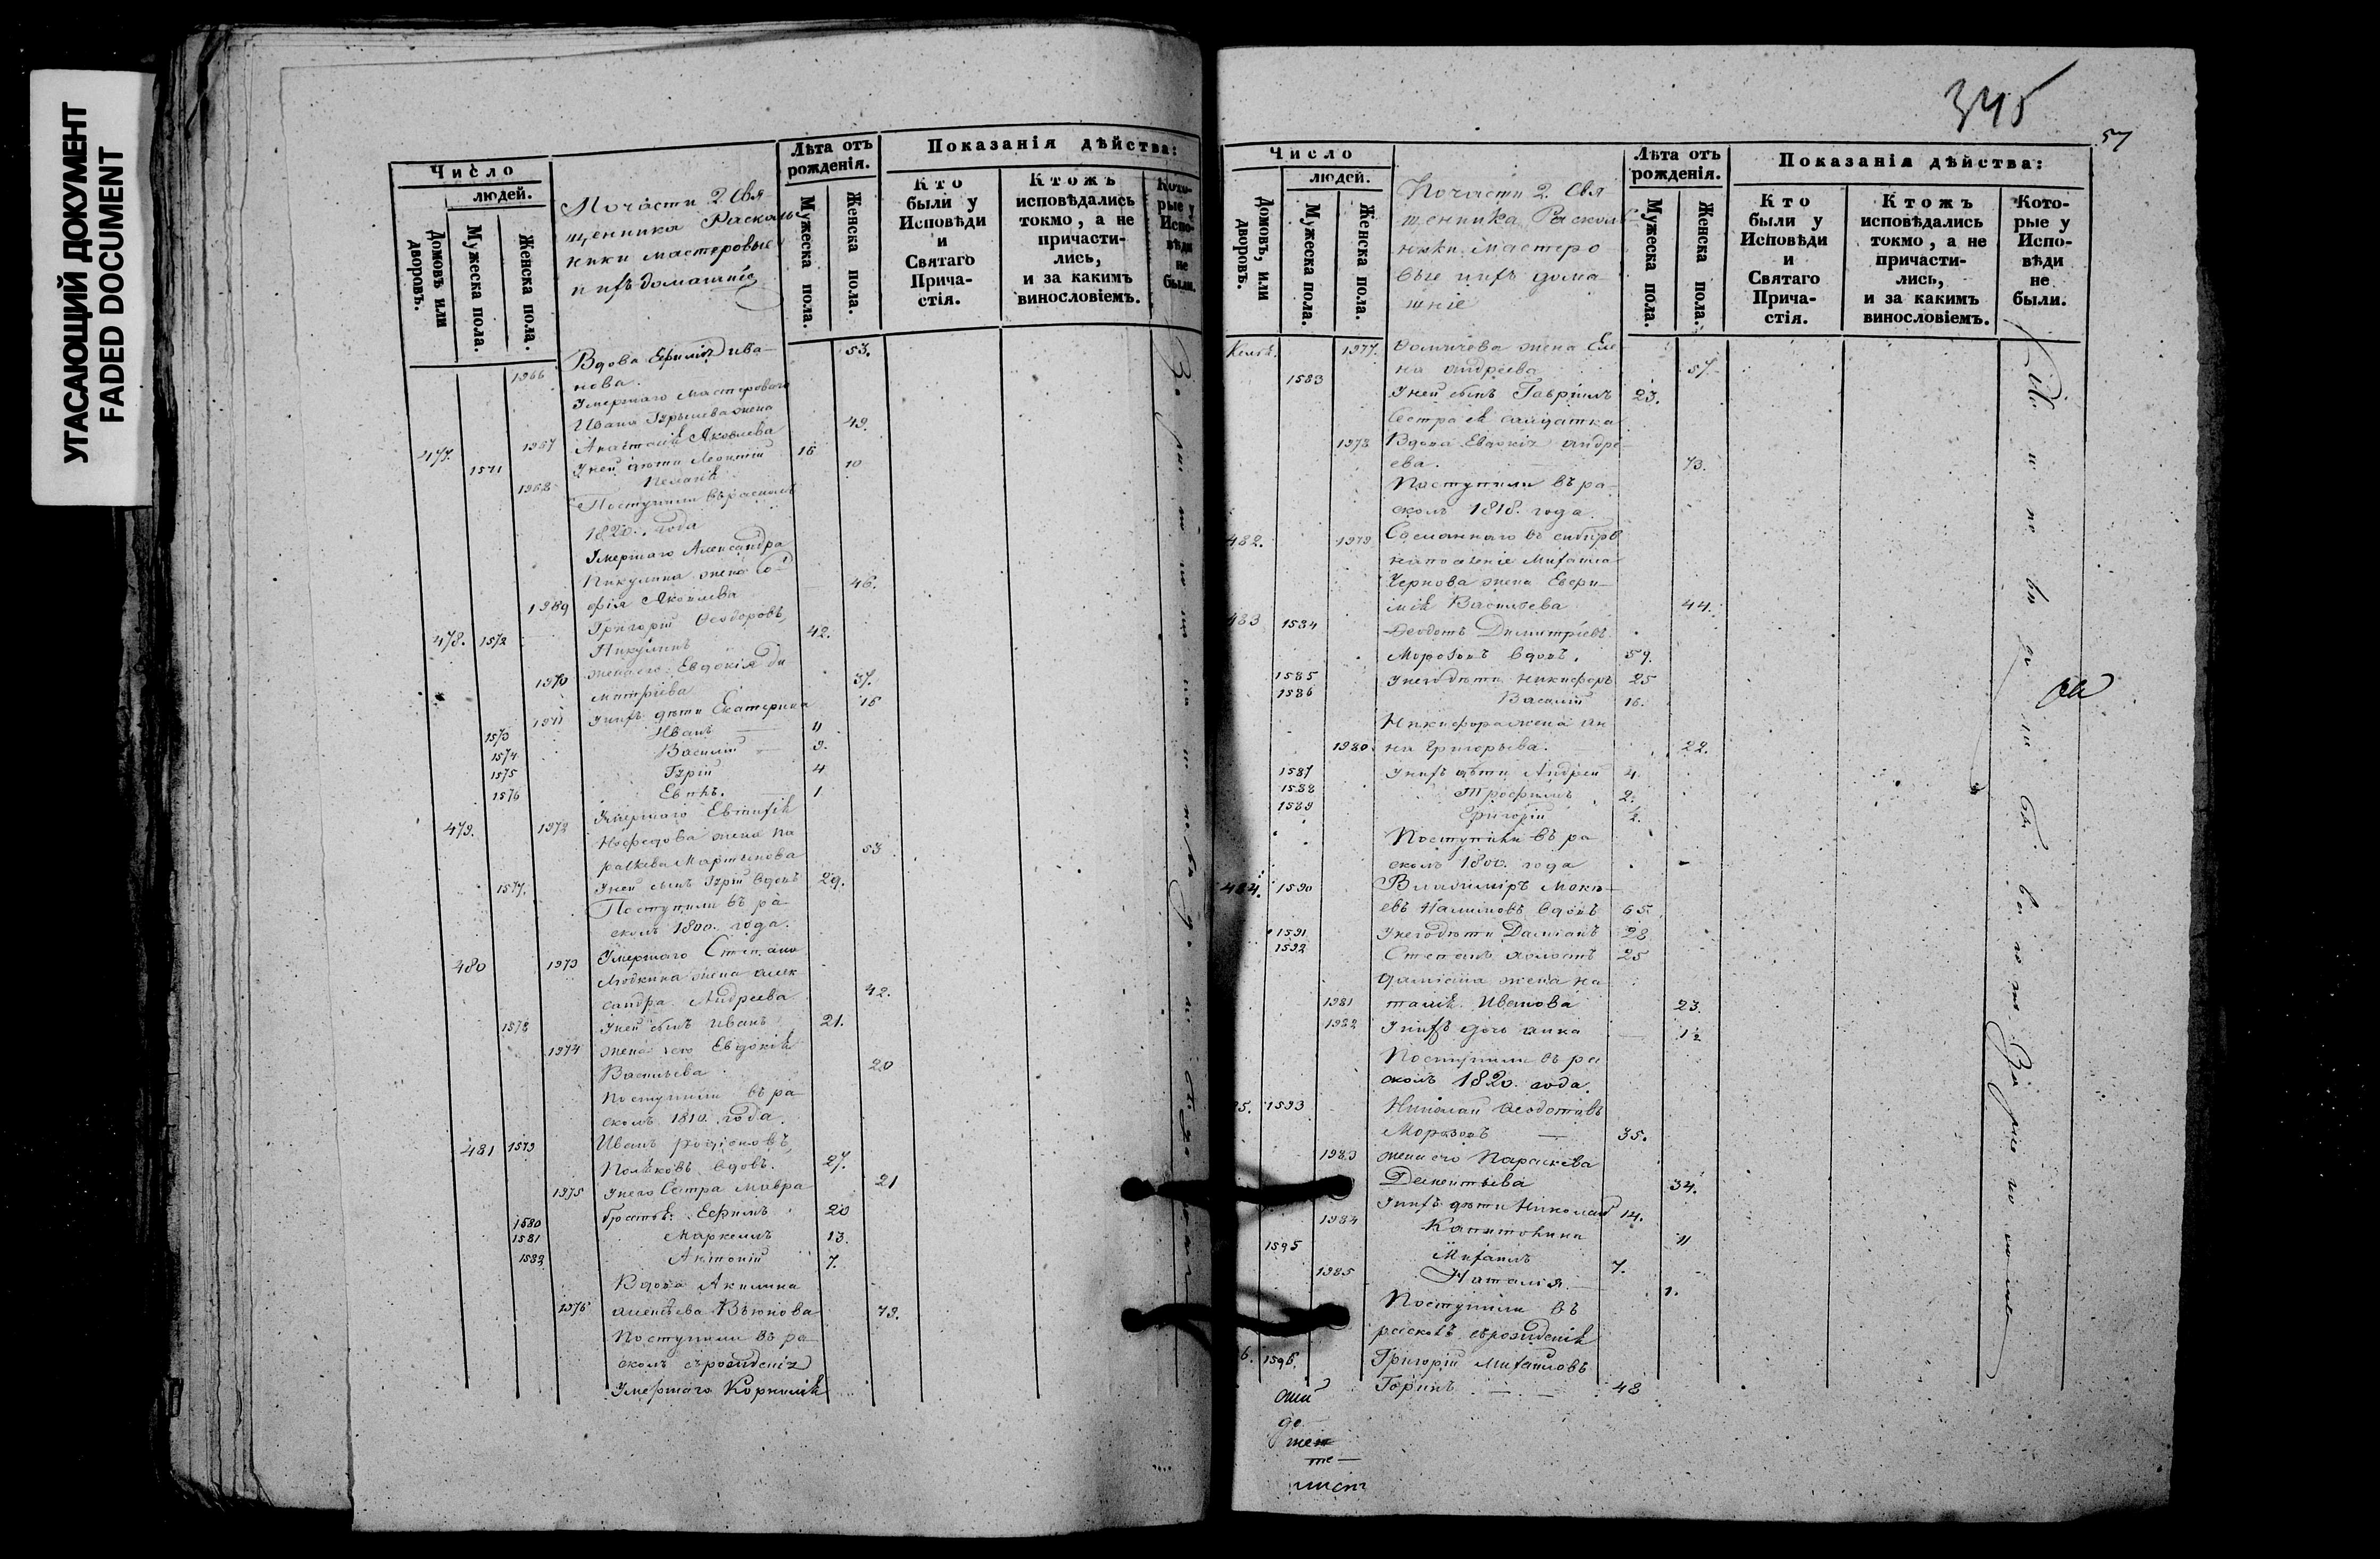 УГАСАЮЩИЙ ДОКУМЕНТ
FADED DOCUMENT
Число
людей.
Домовъ или дворовъ.
Мужеска пола.
Женска пола.
По части 2. Свя
щенника Расколь
ники мастеровые
и ихъ домашніе
Лѣта отъ рожденія.
Мужеска пола.
Женска пола.
Показанія дѣйства:
Кто были у Исповѣди и Святаго Прича-стія.
Ктожъ исповѣдались токмо, а не причасти-лись, и за какимъ винословіемъ.
Кото-рые у Испо-вѣди не были.
1966 Вдова Ефимія Ива 53.
нова.
Умершаго мастероваго
Ивана жена
1967 Яковлева 49.
477. 1571 У ней дѣти Леонтій 16
1968 Пелагія 10
Поступили въ расколъ
1820. года
Умершаго Александра
Пикулина жена Со
1969 фія Яковлева 46.
478. 1572 Григорій Ѳеодоровъ
Пикулинъ 42.
1970 жена его Евдокія Ди
митріева 37.
1971 У нихъ дѣти Екатерина 16
1573 Иванъ 11
1574 Василій 9.
1575 Гурій 4
1576 1
479. 1972 Умершаго Евтихія
жена Па
раскева Мартынова 53
1577. У ней сынъ Гурій вдовъ 29.
Поступили въ ра
сколъ 1800. года.
480 1973 Умершаго Степана
жена Алек
сандра Андреева 42.
1578 У ней сынъ Иванъ 21.
1974 жена его Евдокія
Васильева 20
Поступили въ ра
сколъ 1810. года.
481 1579 Иванъ Родіоновъ
Поляковъ вдовъ. 27.
1975 У него сестра Мавра 21
1580 братья: Ефимъ 20
1581 Маркеллъ 13.
1582 Антоній 7.
Вдова Акилина
1976 Алексѣева Вьюнова 79.
Поступили въ ра
сколъ съ рожденія
Умершаго Корнилія
345
57
Число
людей.
Домовъ, или дворовъ.
Мужеска пола.
Женска пола.
По части 2. Свя
щенника Расколь
ники мастеро
вые и ихъ дома
шніе
Лѣта отъ рожденія.
Мужеска пола.
Женска пола.
Показанія дѣйства:
Кто были у Исповѣди и Святаго Прича-стія.
Ктожъ исповѣдались токмо, а не причасти-лись, и за какимъ винословіемъ.
Кото-рые у Испо-вѣди не были.
1977. Ѳомичева жена Еле
на Андреева 57.
1583 У ней сынъ Гавріилъ 23.
Сестра ея солдатка
1978 Вдова Евдокія Андре
ева. 73.
Поступили въ ра
сколъ 1818. года.
482. 1979 Сосланнаго въ Сибирь
на поселеніе Михаила
Чернова жена Евфи
мія Васильева 44.
483 1584 Ѳеодотъ Димитріевъ
Морозовъ вдовъ. 59.
1585 У него дѣти Никифоръ 25
1586 Василій 16.
Никифора жена Ан
1980. на Григорьева. 22.
1587 У нихъ дѣти Андрей 4.
1588 Трофимъ 2.
1589 Григорій ½.
Поступили въ ра
сколъ 1800. года
484. 1590 Владиміръ Моке
евъ вдовъ 65.
1591 У него дѣти Даміанъ 28
1592 Степанъ холостъ 25
Даміана жена На
1981 талія Иванова 23.
1982 У нихъ дочь Анна 1½
Поступили въ ра
сколъ 1820. года.
85. 1593 Николай Ѳеодотовъ
Морозовъ 35.
1983 жена его Параскева
Дементьева 34.
У нихъ дѣти Николай 14.
1984 Капитолина 11
1595 Михаилъ 7.
1985 Наталія 1.
Поступили въ
расколъ съ рожденія
6. 1596. Григорій Михаиловъ
Горинъ 48